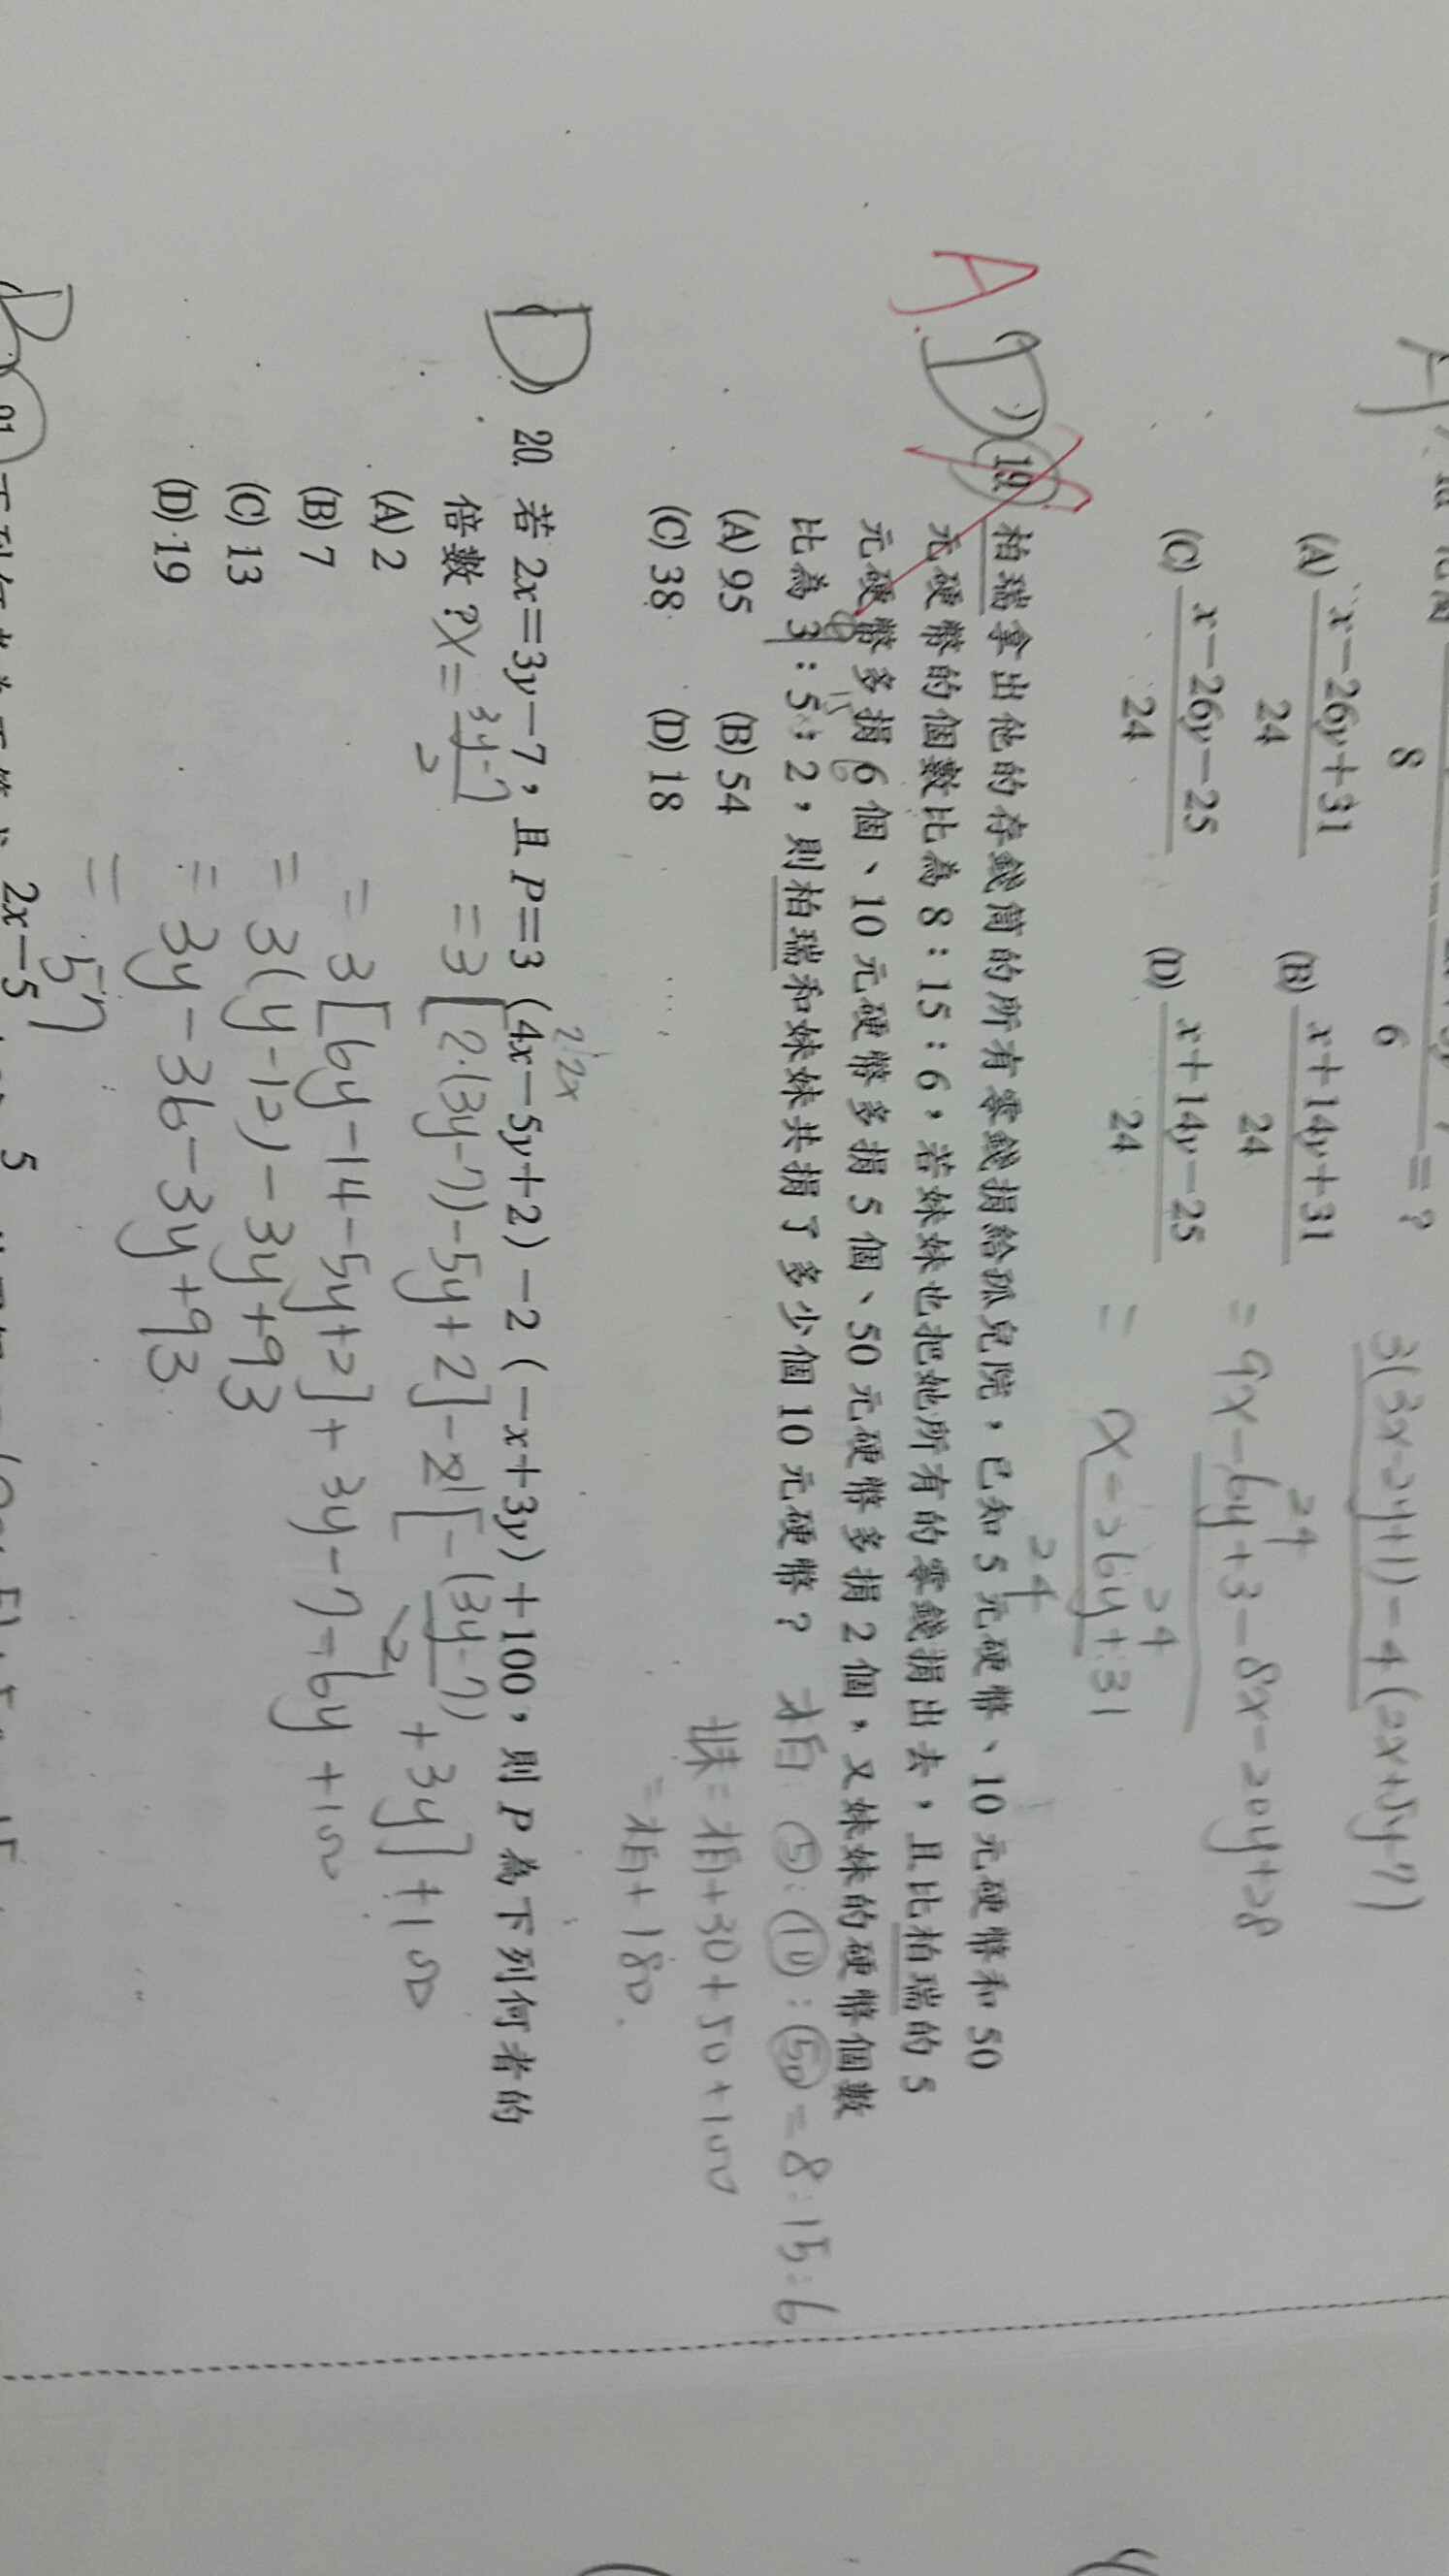 8
6
=?
(A) x-26y+31 / 24
(B) x+14y+31 / 24
(C) x-26y-25 / 24
(D) x+14y-25 / 24
3(3x-2y+1)-4(2x+5y-7)
24
= 9x-6y+3-8x-20y+28
24
= x-26y+31
24
A
(D) 19. 柏瑞拿出他的存錢筒的所有零錢捐給孤兒院,已知 5 元硬幣、10 元硬幣和 50
元硬幣的個數比為 8:15:6,若妹妹也把她所有的零錢捐出去,且比柏瑞的 5
元硬幣多捐 6 個、10 元硬幣多捐 5 個、50 元硬幣多捐 2 個,又妹妹的硬幣個數
比為 3:5:2,則柏瑞和妹妹共捐了多少個 10 元硬幣?
(A) 95
(B) 54
(C) 38
(D) 18
柏: ⑤:⑩:㊿=8:15:6
妹=柏+30+50+100
=柏+180.
(D) 20. 若 2x=3y-7,且 P=3(4x-5y+2)-2(-x+3y)+100,則 P 為下列何者的
倍數?
2·2x
x=3y-7 / 2
(A) 2
(B) 7
(C) 13
(D) 19
=3[2·(3y-7)-5y+2]-2[-(3y-7)/2+3y]+100
=3[6y-14-5y+2]+3y-7-6y+100
=3(y-12)-3y+93
=3y-36-3y+93
=57
2x-5
5